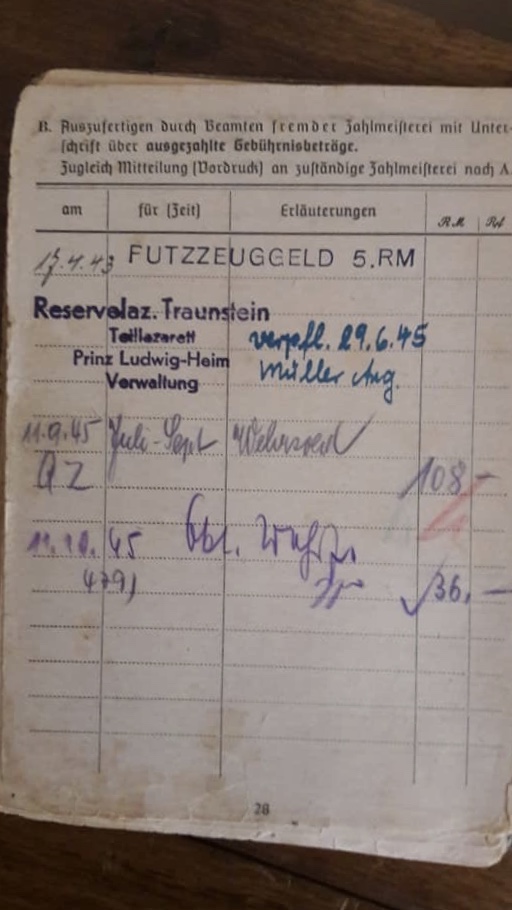 B. Auszufertigen durch Beamten fremder Zahlmeisterei mit Unter-
schrift über ausgezahlte Gebührnisbeträge.
Zugleich Mitteilung (Vordruck) an zuständige Zahlmeisterei nach A.
am für (Zeit) Erläuterungen RM Rpf
17.4.43 FUTZZEUGGELD 5.RM
Reservelaz. Traunstein
Teillazarett verpfl. 29.6.45
Prinz Ludwig-Heim Müller Ang.
Verwaltung
11.9.45 Juli-Sept Wehrsold
108,-
11.10.45 Okt.
4791 36,-
28